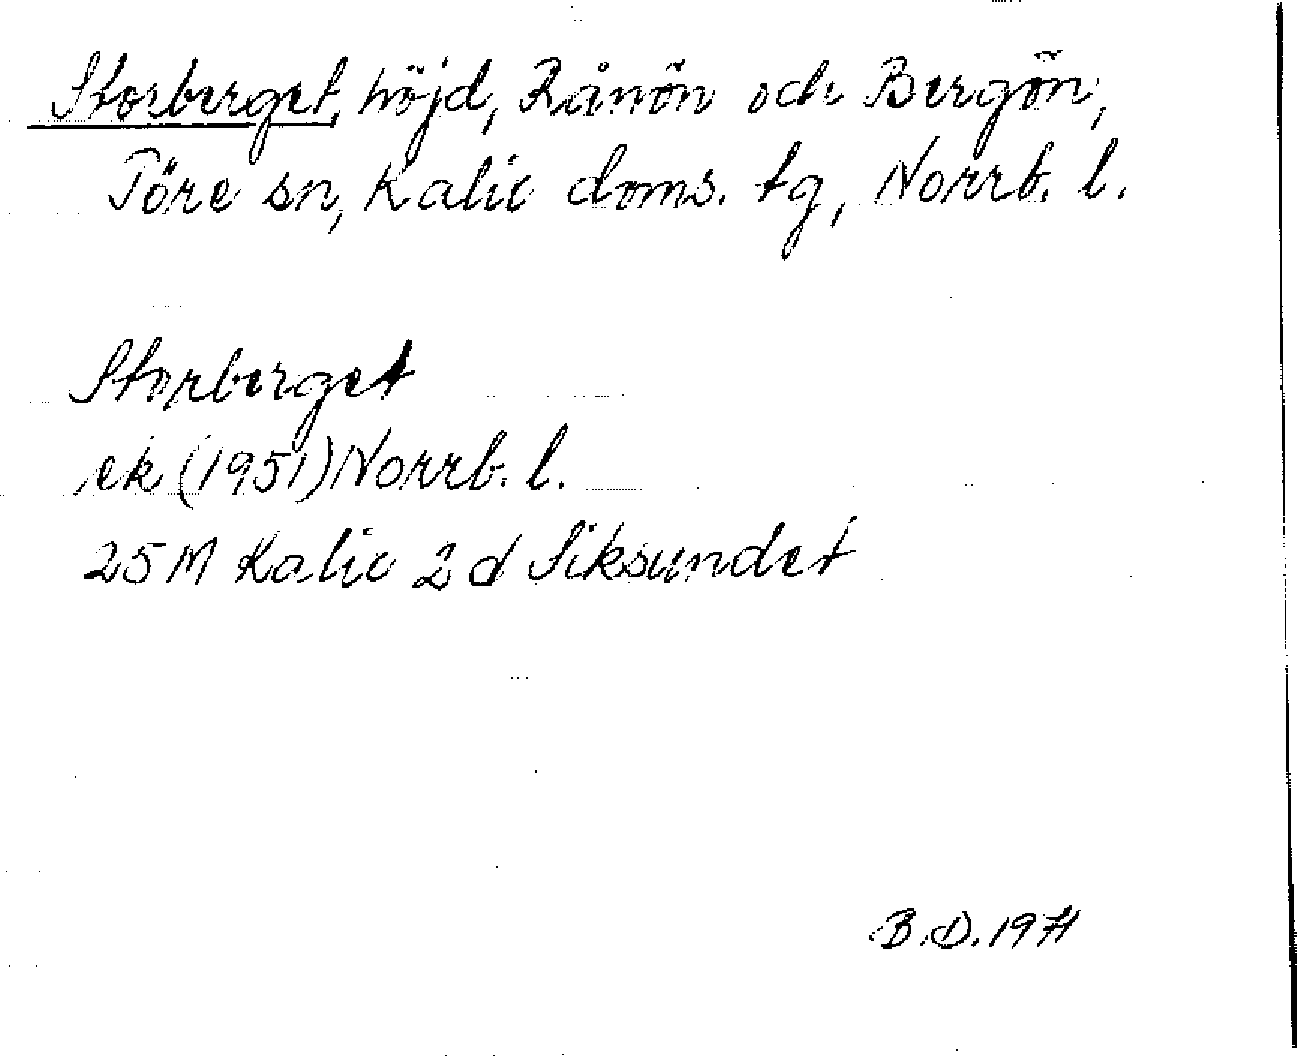 Storberget, höjd, Rånön och Bergön,
Töre sn, Kalix doms. tg, Norrb. l.
Storberget
ek (1951) Norrb. l.
25 M Kalix 2 d Siksundet
B.D. 1971